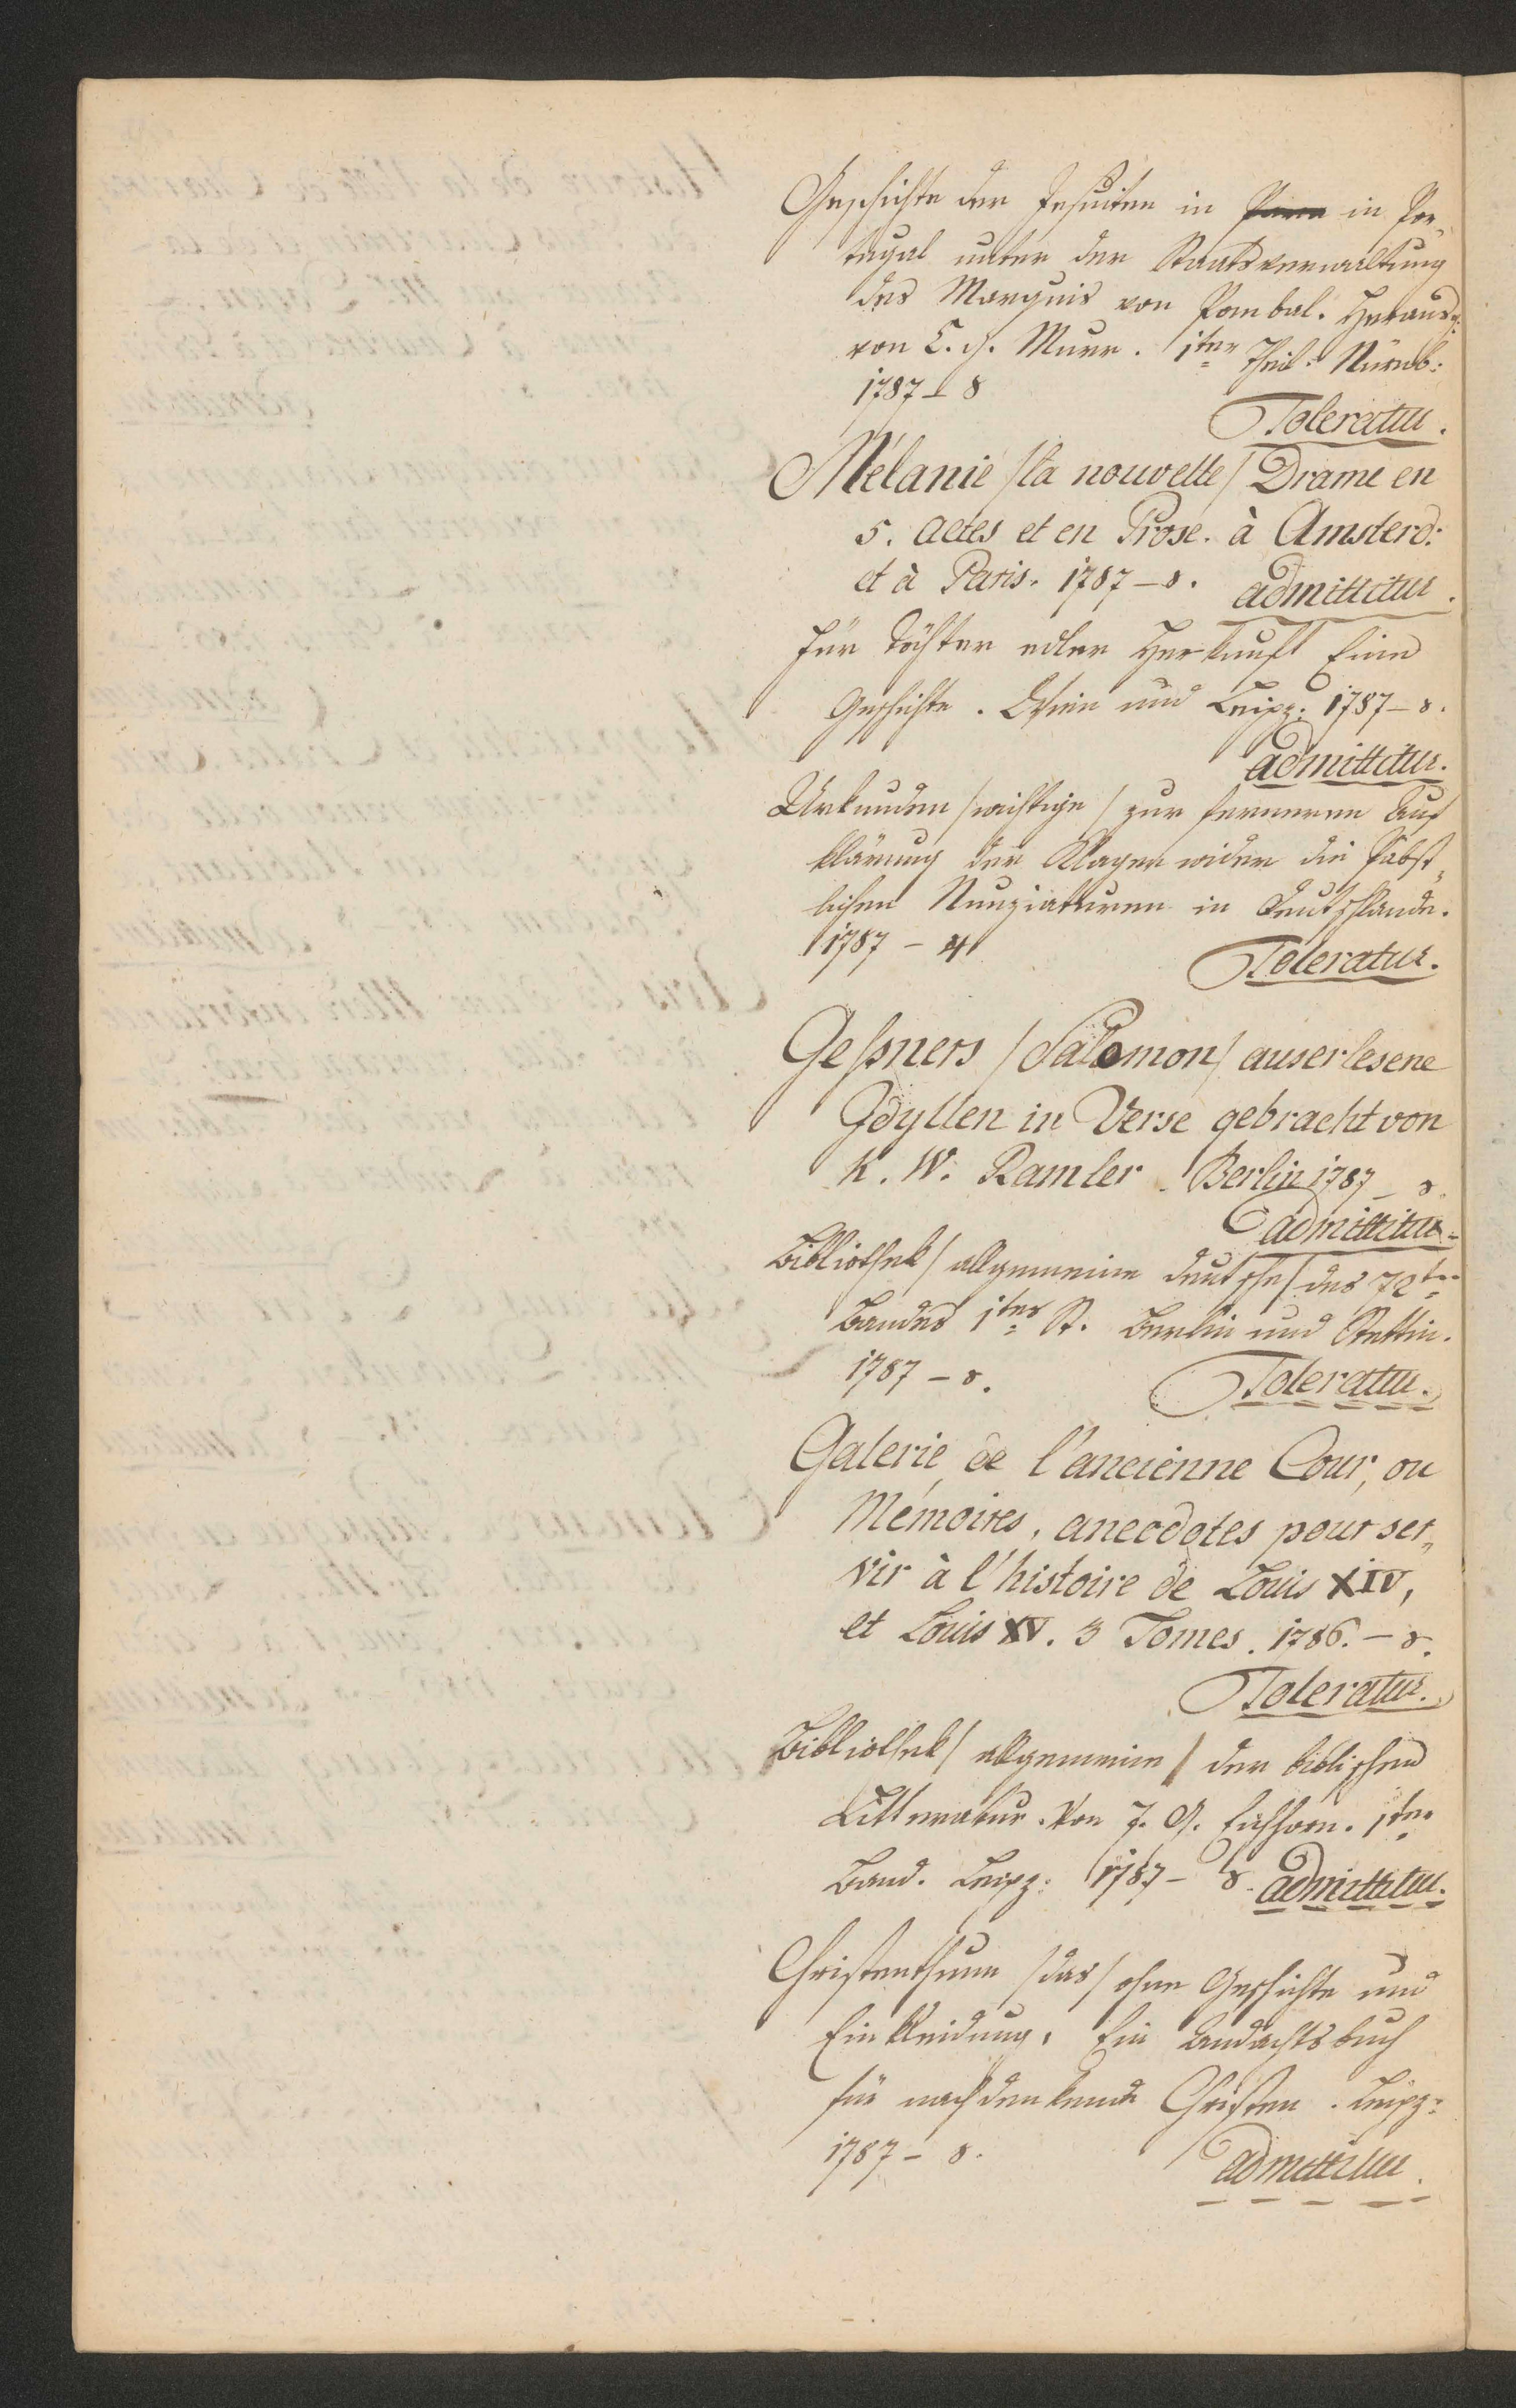 Geschichte der Jesuiten in in Por„
tugal unter der Staatsverwaltung
des Marquis von Pombal. Herausg:
von C. G. Murr. 1ter Theil. Nürnb:
1787 – 8
Toleratur.
Mélanie /la nouvelle/ Drame en
5. actes et en Prose. à Amsterd:
et à Paris. 1787 – 8. admittitur.
Für Töchter edler Herkunft Eine
Geschichte. Wien und Leipz: 1787 – 8.
admittitur.
Urkunden /wichtige/ zur ferneren Auf
klärung der Klagen wider die Päbst„
lichen Nunziaturen in Deutschlande.
1787 – 4
Toleratur.
Geßners /Salomon/ auserlesene
Idyllen in Verse gebracht von
K. W. Ramler. Berlin 1787 – 8.
admittitur.
Bibliothek /allgemeine deutsche/ des 72ten
Bandes 1tes St. Berlin und Stettin.
1787 – 8.
Toleratur.
Galerie de l'ancienne Cour, ou
Mémoires, anecdotes pour ser„
vir à l'histoire de Louis XIV,
et Louis XV. 3 Tomes. 1786. – 8.
Toleratur.
Bibliothek /allgemeine/ der biblischen
Litteratur. Von J. G. Eichhorn. 1ter
Band. Leipz: 1787 – 8. admittitur.
Christenthum /das/ ohne Geschichte und
Einkleidung. Ein Andachtsbuch
für nachdenkende Christen. Leipz:
1787 – 8.
admittitur.